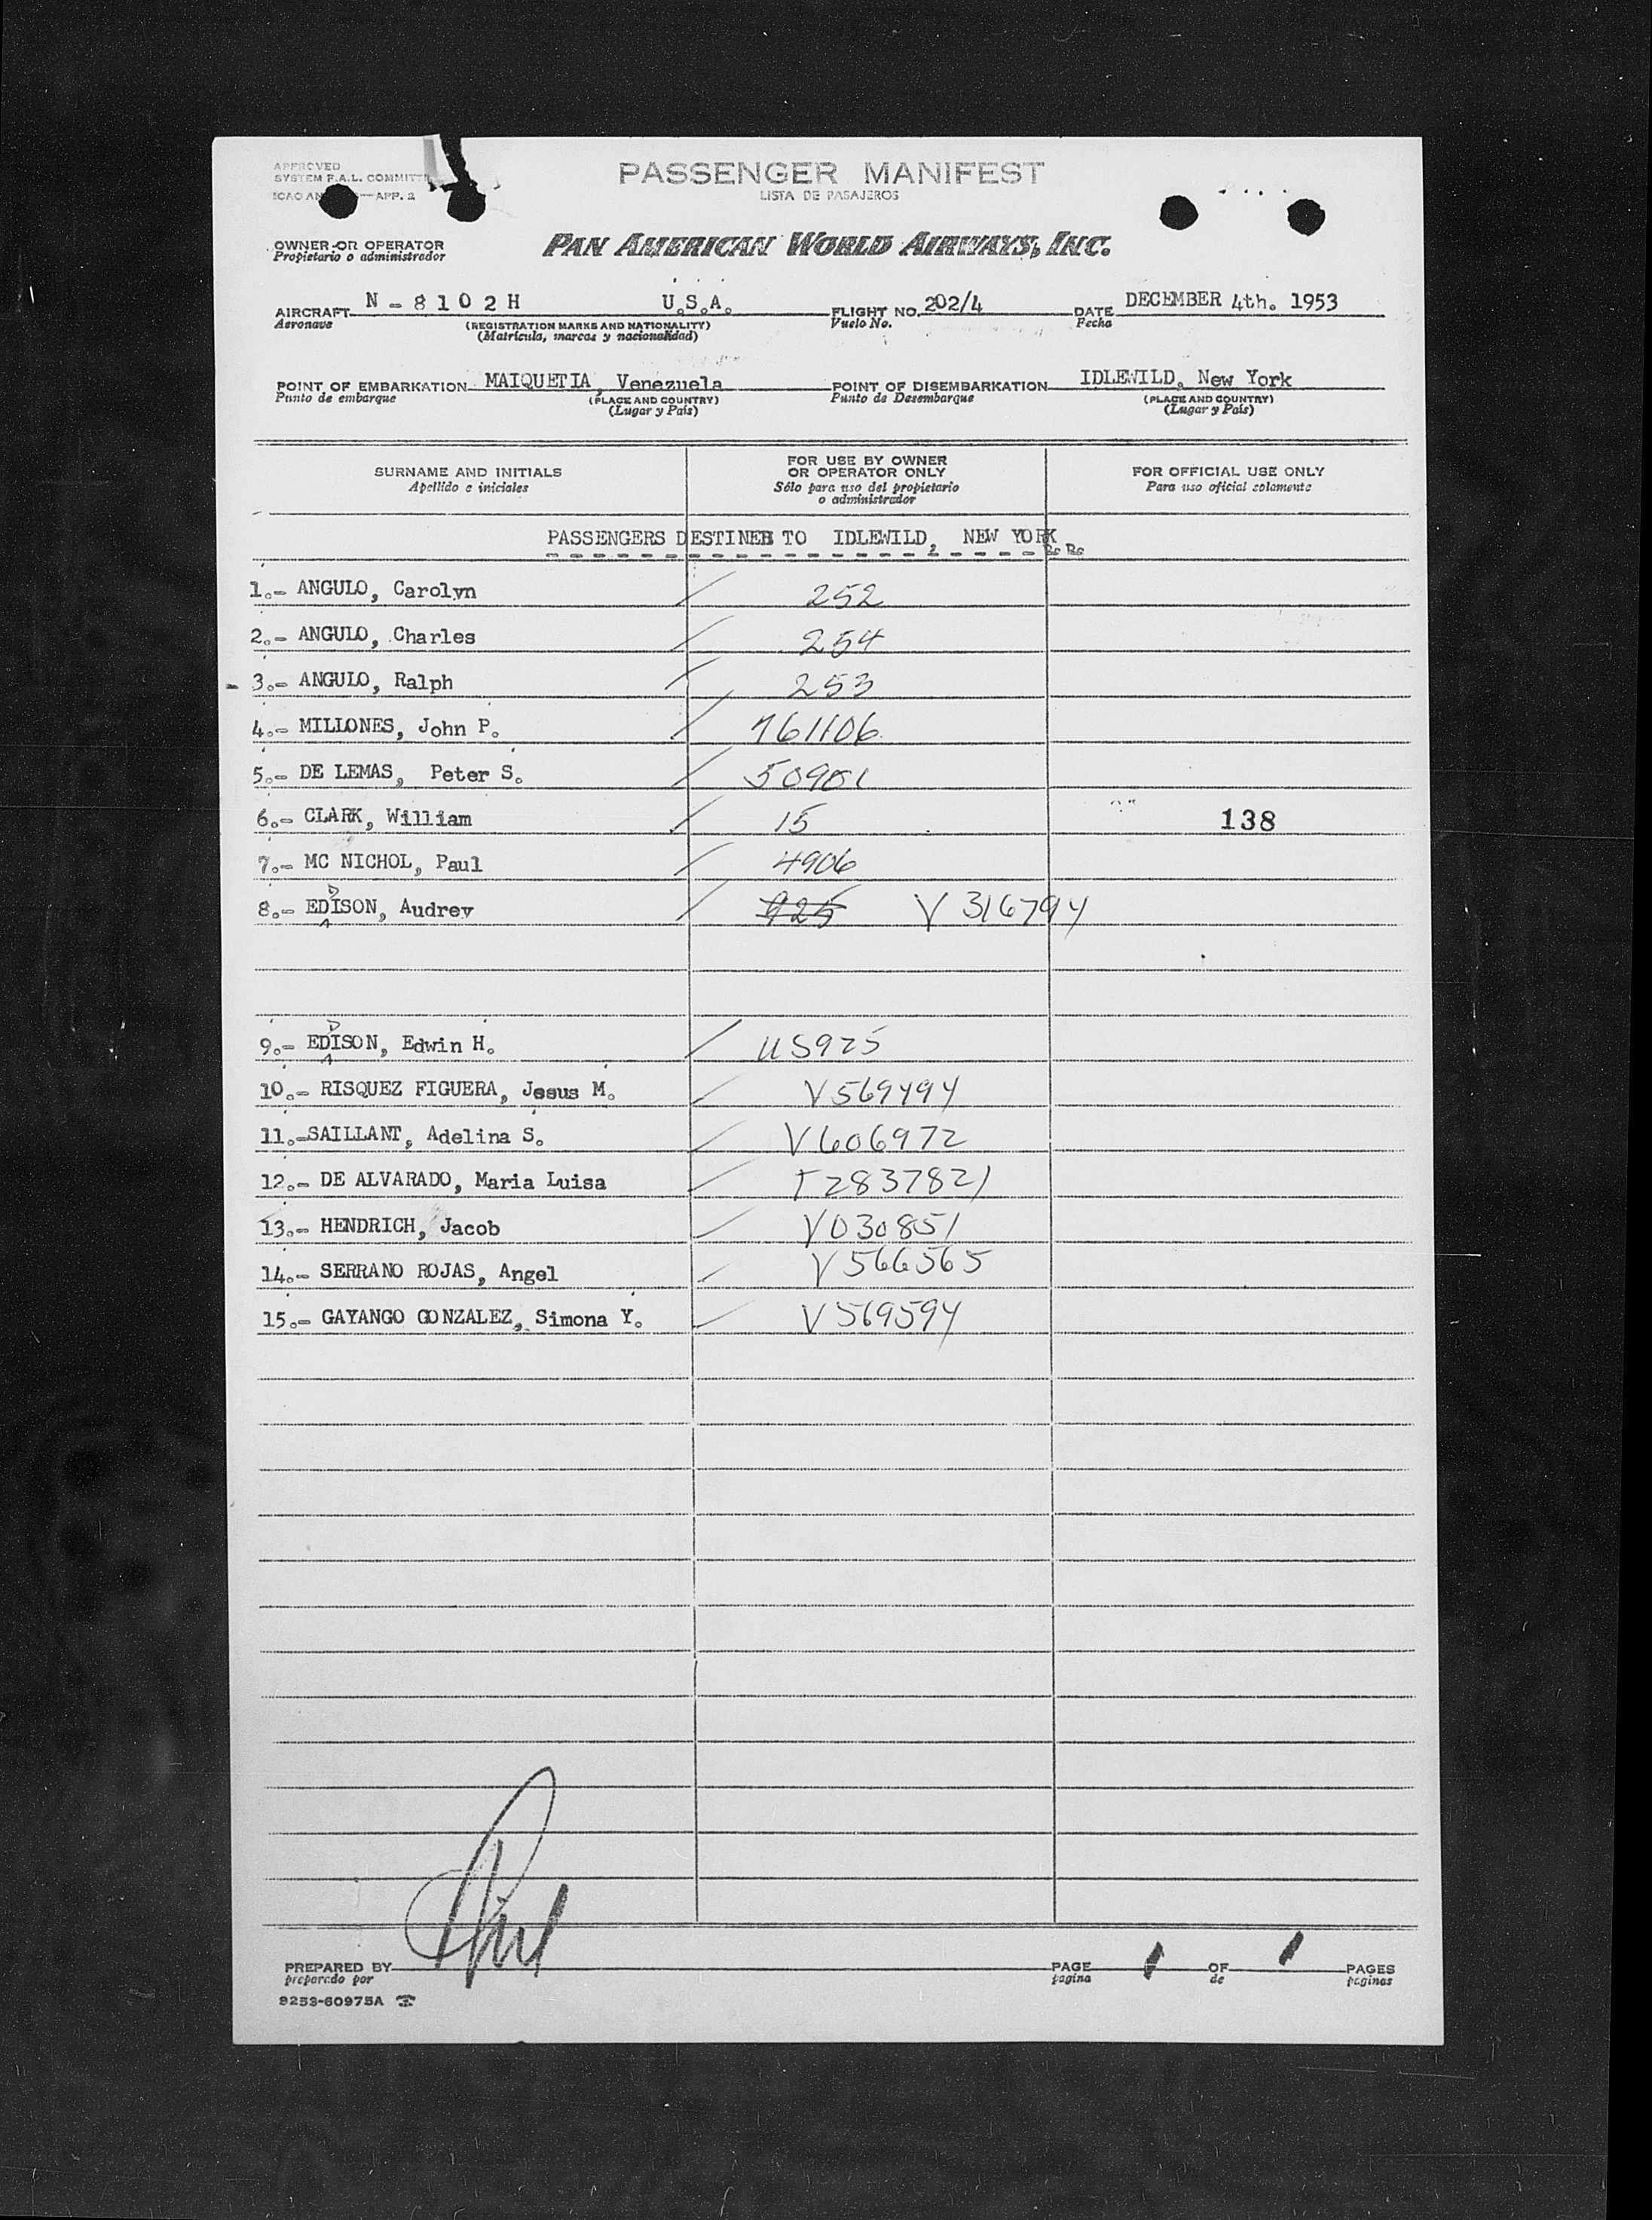 APPROVED
SYSTEM F.A.L. COMMITT
ICAO AN —APP. 2
PASSENGER MANIFEST
LISTA DE PASAJEROS
OWNER OR OPERATOR
Propietario o administrador
PAN AMERICAN WORLD AIRWAYS, INC.
AIRCRAFT N - 8 1 0 2 H U.S.A. FLIGHT NO. 202/4 DATE DECEMBER 4th. 1953
Aeronave (REGISTRATION MARKS AND NATIONALITY) Vuelo No. Fecha
(Matrícula, marcas y nacionalidad)
POINT OF EMBARKATION MAIQUETIA, Venezuela POINT OF DISEMBARKATION IDLEWILD, New York
Punto de embarque (PLACE AND COUNTRY) Punto de Desembarque (PLACE AND COUNTRY)
(Lugar y País) (Lugar y País)
SURNAME AND INITIALS
Apellido e iniciales
FOR USE BY OWNER
OR OPERATOR ONLY
Sólo para uso del propietario
o administrador
FOR OFFICIAL USE ONLY
Para uso oficial solamente
PASSENGERS DESTINED TO IDLEWILD, NEW YORK
1.- ANGULO, Carolyn / 252
2.- ANGULO, Charles / 254
- 3.- ANGULO, Ralph / 253
4.- MILLONES, John P. / 761106
5.- DE LEMAS, Peter S. /
6.- CLARK, William / 15 138
7.- MC NICHOL, Paul / 4906
8.- EDDISON, Audrey / 925 V 316794
9.- EDDISON, Edwin H. / US925
10.- RISQUEZ FIGUERA, Jesus M. / V569494
11.-SAILLANT, Adelina S. / V606972
12.- DE ALVARADO, Maria Luisa / T2837821
13.- HENDRICH, Jacob / V030851
14.- SERRANO ROJAS, Angel / V566565
15.- GAYANGO GONZALEZ, Simona Y. / V569594
PREPARED BY PAGE 1 OF 1 PAGES
preparado por pagina de paginas
9253-60975A